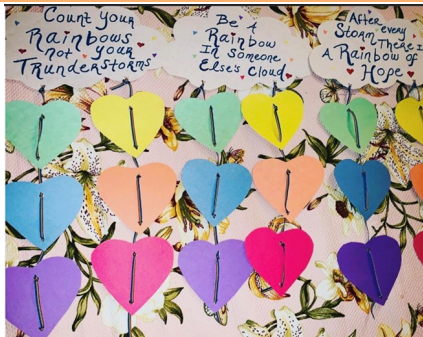 Count Your
Rainbows
not your
Thunderstorms
Be A
Rainbow
In Someone
Else's Cloud
After every
Storm There I
A Rainbow of
Hope